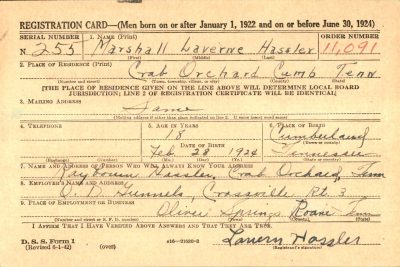 REGISTRATION CARD—(Men born on or after January 1, 1922 and on or before June 30, 1924)
SERIAL NUMBER 1. NAME (Print) ORDER NUMBER
N 255 Marshall Laverne Hassler 11,091
(First) (Middle) (Last)
2. PLACE OF RESIDENCE (Print)
Crab Orchard Cumb Tenn
(Number and street) (Town, township, village, or city) (County) (State)
[THE PLACE OF RESIDENCE GIVEN ON THE LINE ABOVE WILL DETERMINE LOCAL BOARD
JURISDICTION; LINE 2 OF REGISTRATION CERTIFICATE WILL BE IDENTICAL]
3. MAILING ADDRESS
Same
[Mailing address if other than place indicated on line 2. If same insert word same]
4. TELEPHONE 5. AGE IN YEARS 6. PLACE OF BIRTH
18 Cumberland
DATE OF BIRTH
Feb 28 1924 Tennessee
(Mo.) (Day) (Yr.)
7. NAME AND ADDRESS OF PERSON WHO WILL ALWAYS KNOW YOUR ADDRESS
Hassler, Crab Orchard, Tenn
8. EMPLOYER'S NAME AND ADDRESS
Crossville Rt. 3
9. PLACE OF EMPLOYMENT OR BUSINESS
Oliver Springs Roane Tenn
(Number and street or R. F. D. number) (Town) (County) (State)
I AFFIRM THAT I HAVE VERIFIED ABOVE ANSWERS AND THAT THEY ARE TRUE.
D. S. S. Form 1
(Revised 6-1-42) (over) Lavern Hassler
(Registrant's signature)